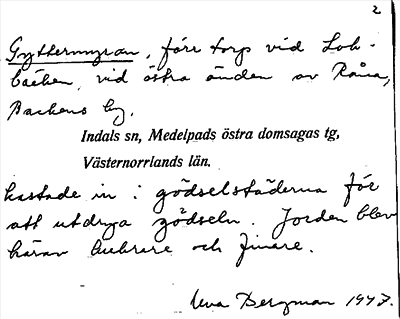 2
Gyttermyran, förr torp vid Lok-
bäcken, vid östra änden av Råna,
Backens by.
Indals sn, Medelpads östra domsagas tg,
Västernorrlands län.
kastade in i gödselstäderna för
att utdryga gödseln. Jorden blev
härav luckrare och finare.
Uva Bergman 1947.